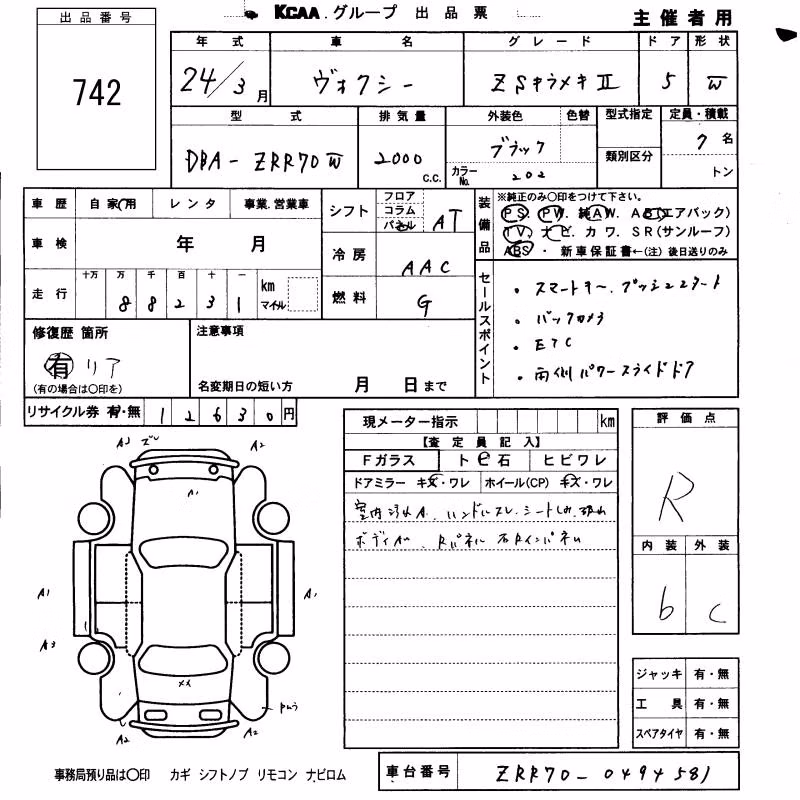 KCAA. グループ 出品票
主催者用
出品番号
742
年式 車名 グレード ドア 形状
24/3月 ヴォクシー ZSキラメキⅡ 5 W
型式 排気量 外装色 色替 型式指定 定員・積載
DBA-ZRR70W 2000 c.c. ブラック カラーNo. 202 類別区分 7名 トン
車歴 自家用 レンタ 事業.営業車
シフト フロア コラム パネル AT
装備品 ※純正のみ〇印をつけて下さい。
PS. PW. 純AW. AB(エアバック)
TV. ナビ. カワ. SR(サンルーフ)
ABS・新車保証書←(注) 後日送りのみ
車検 年 月
冷房 AAC
走行 十万 万 千 百 十 一
8 8 2 3 1 km マイル
燃料 G
セールスポイント
・スマートキー.プッシュスタート
・バックカメラ
・ETC
・両側パワースライドドア
修復歴 箇所
有 リア
(有の場合は〇印を)
注意事項
名変期日の短い方 月 日まで
リサイクル券 有・無 12630円
現メーター指示 km
【査定員記入】
Fガラス トビ石 ヒビワレ
ドアミラー キズ・ワレ ホイール(CP) キズ・ワレ
室内汚れA. ハンドルスレ.シートしみ.破れ
ボディAU. Rパネル 右Rインパネル
評価点
R
内装 外装
b c
ジャッキ 有・無
工具 有・無
スペアタイヤ 有・無
A3 ズレ A2
A1
A1 A1
A3
メイ
A2 A2
事務局預り品は〇印 カギ シフトノブ リモコン ナビロム
車台番号 ZRR70-0494581